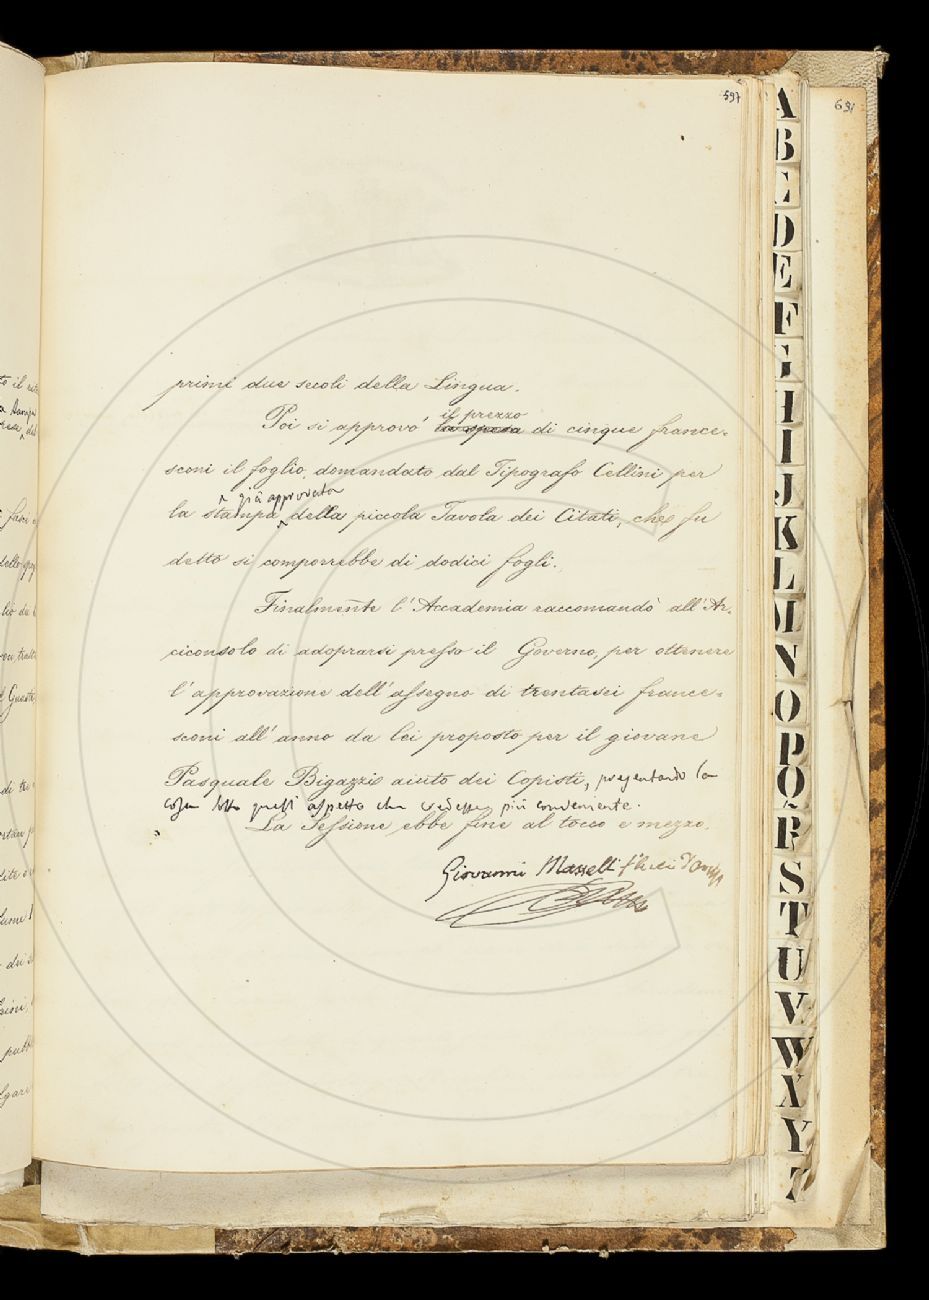 597
691
primi due secoli della Lingua.
il prezzo
Poi si approvò la spesa di cinque france-
sconi il foglio, domandato dal Tipografo Cellini per
già approvata
la stampa della piccola Tavola dei Citati, che fu
detto si comporrebbe di dodici fogli.
Finalmente l'Accademia raccomandò all'Ar-
ciconsolo di adoprarsi presso il Governo, per ottenere
l'approvazione dell'assegno di trentasei france-
sconi all'anno da lei proposto per il giovane
Pasquale Bigazzi aiuto dei Copisti, presentando la
cosa sotto quell'aspetto che credesse più conveniente.
La Sessione ebbe fine al tocco e mezzo.
Giovanni Masselli
A
B
C
D
E
F
G
H
I
J
K
L
M
N
O
P
Q
R
S
T
U
V
W
X
Y
Z